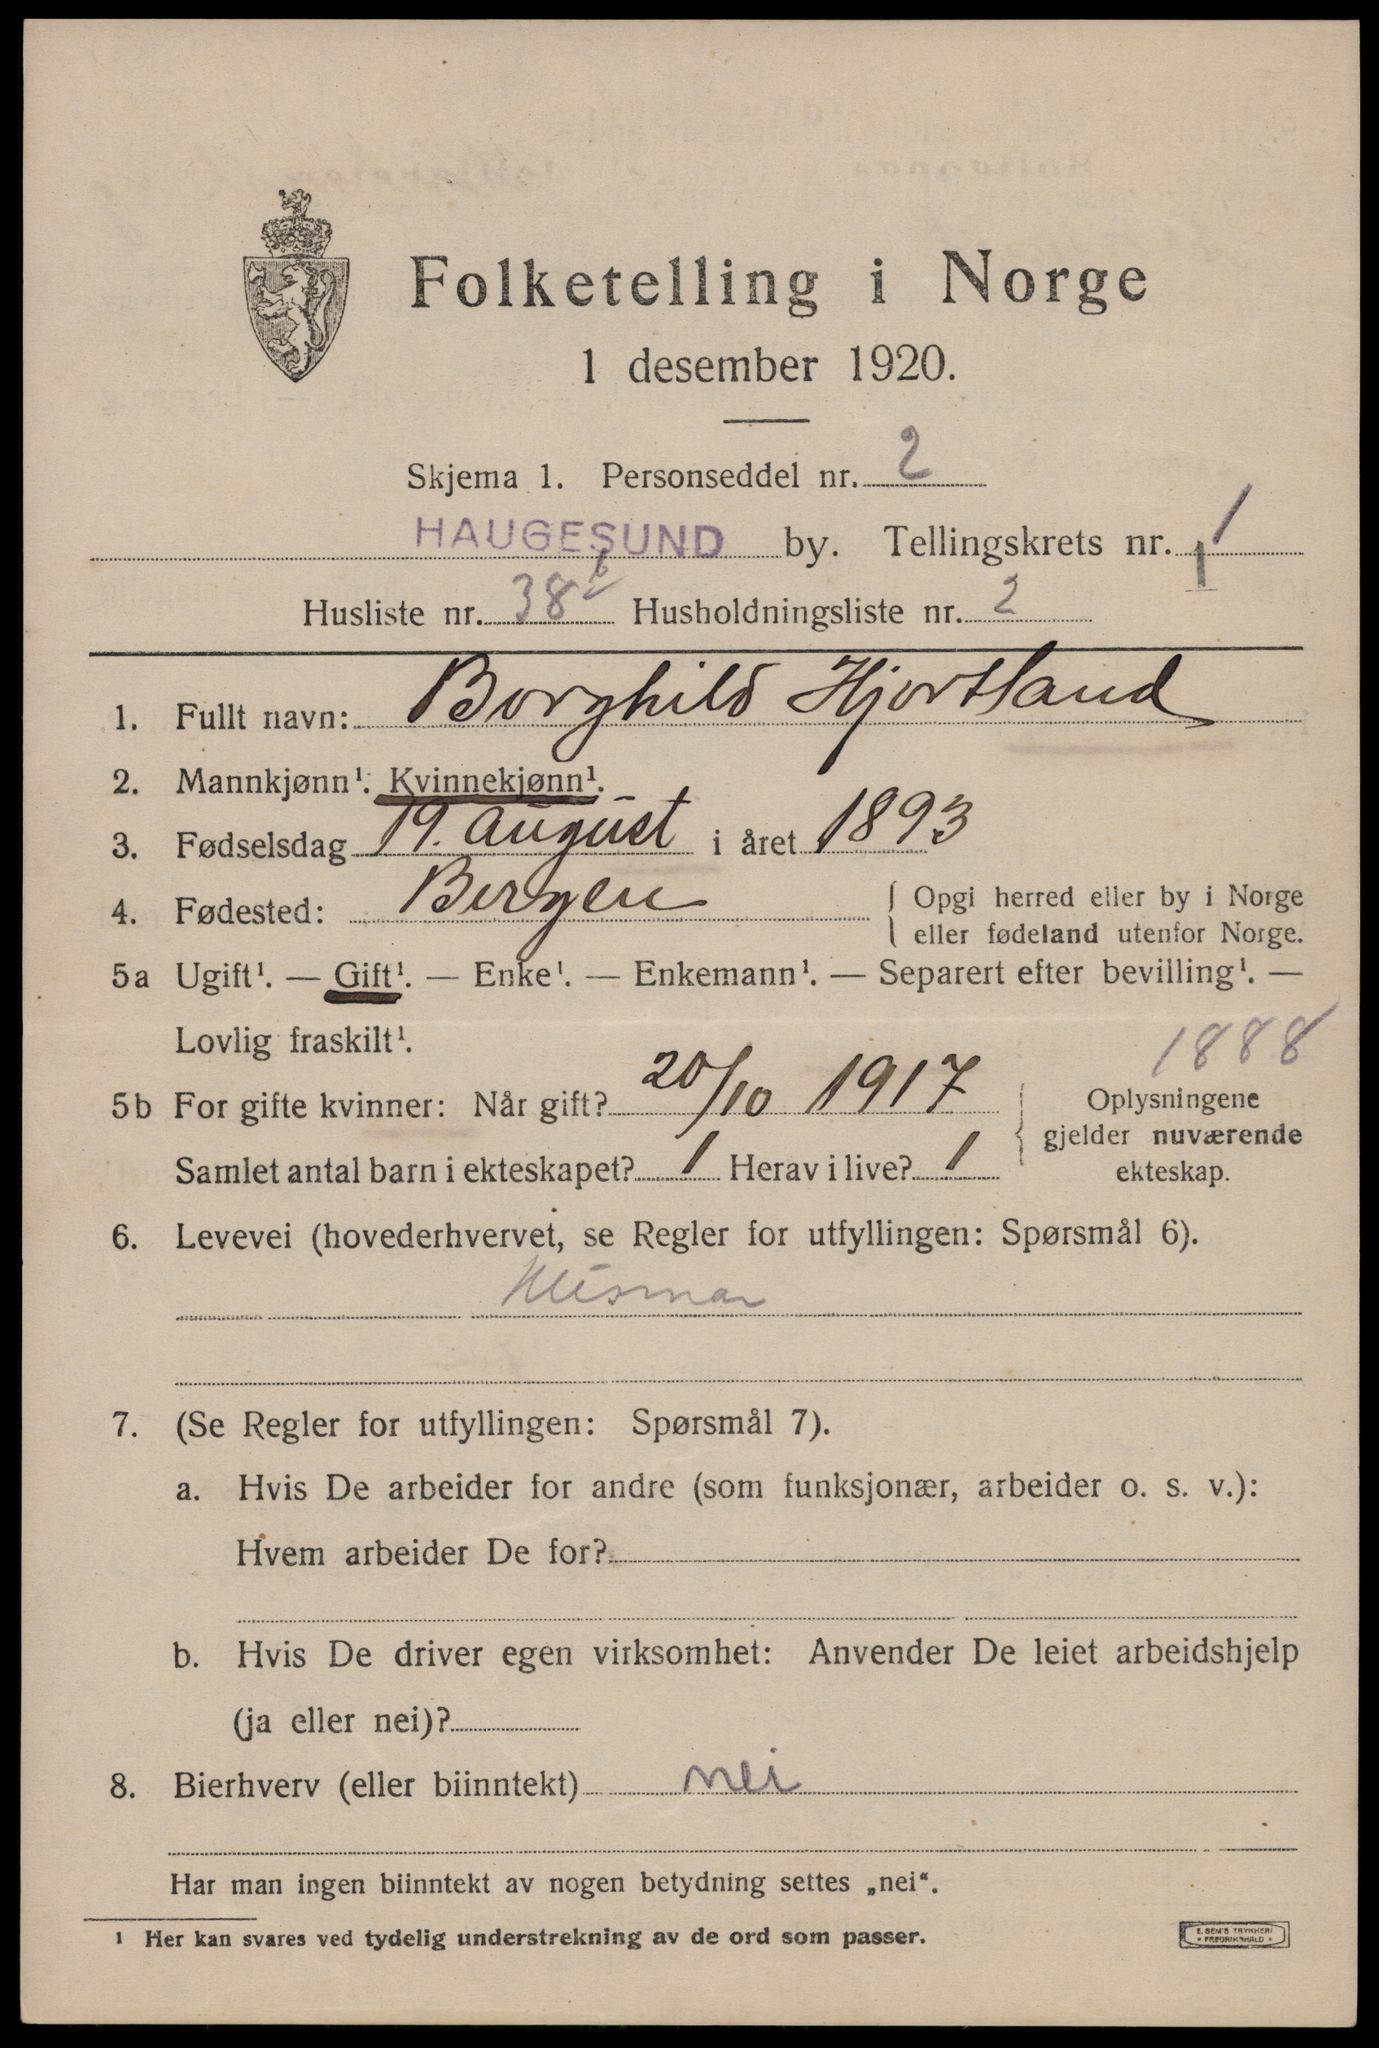 Folketelling i Norge
1 desember 1920.
Skjema 1. Personseddel nr. 2
HAUGESUND by. Tellingskrets nr. 1 1
Husliste nr. 38 b Husholdningsliste nr. 2
1. Fullt navn: Borghild Hjortland
2. Mannkjønn¹. Kvinnekjønn¹.
3. Fødselsdag 19. august i året 1893
4. Fødested: Bergen { Opgi herred eller by i Norge
eller fødeland utenfor Norge.
5a Ugift¹. — Gift¹. — Enke¹. — Enkemann¹. — Separert efter bevilling¹. —
Lovlig fraskilt¹.
1888
5b For gifte kvinner: Når gift? 20/10 1917
Samlet antal barn i ekteskapet? 1 Herav i live? 1
Oplysningene
gjelder nuværende
ekteskap.
6. Levevei (hovederhvervet, se Regler for utfyllingen: Spørsmål 6).
7. (Se Regler for utfyllingen: Spørsmål 7).
a. Hvis De arbeider for andre (som funksjonær, arbeider o. s. v.):
Hvem arbeider De for?
b. Hvis De driver egen virksomhet: Anvender De leiet arbeidshjelp
(ja eller nei)?
8. Bierhverv (eller biinntekt) nei
Har man ingen biinntekt av nogen betydning settes „nei“.
1 Her kan svares ved tydelig understrekning av de ord som passer.
E. SEM'S TRYKKERI
• FREDRIKSHALD •